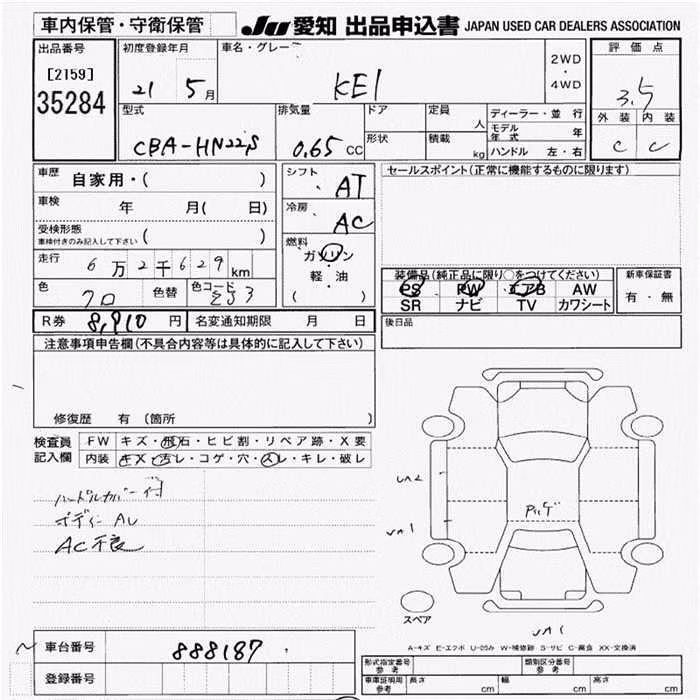 車内保管・守衛保管
JU 愛知 出品申込書 JAPAN USED CAR DEALERS ASSOCIATION
出品番号
[2159]
35284
初度登録年月
21 5月
車名・グレード
KEI
2WD
・
4WD
評価点
3.5
外装 内装
C C
型式
CBA-HN22S
排気量
0.65 CC
ドア
形状
定員
人
積載
kg
ディーラー・並行
モデル年式 年
ハンドル 左・右
車歴 自家用・( )
車検 年 月( 日)
受検形態
車検付きのみ記入して下さい ( )
走行 6万2千629 km
色 クロ 色替 色コード ZJ3
シフト AT
冷房 AC
燃料
ガソリン
軽・油
( )
セールスポイント(正常に機能するものに限ります)
装備品(純正品に限り○をつけてください)
PS PW エアB AW
SR ナビ TV カワシート
新車保証書
有・無
R券 8,910 円 名変通知期限 月 日
後日品
注意事項申告欄(不具合内容等は具体的に記入して下さい)
修復歴 有(箇所 )
検査員記入欄
FW キズ・飛石・ヒビ割・リペア跡・X要
内装 キズ・汚レ・コゲ・穴・スレ・キレ・破レ
ハンドルカバー付
ボディー AU
AC不良
UA2
UA1
スペア
UA1
A-キズ E-エクボ U-凹み W-補修跡 S-サビ C-腐食 XX-交換済
車台番号 888187
登録番号
型式指定番号 参考
類別区分番号 参考
車庫証明用 参考 長さ cm 幅 cm 高さ cm